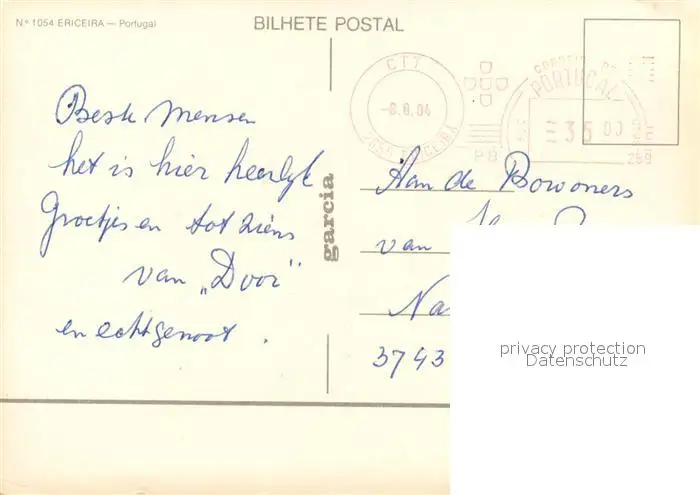 Nº 1054 ERICEIRA — Portugal
BILHETE POSTAL
CTT
-8.8.04
2655 ERICEIRA
PB
CORREIO DE
PORTUGAL
35 00
269
Beste mensen
het is hier heerlijk
Groetjes en tot ziens
van „Door"
en echtgenoot.
garcia
Aan de Bowoners
van
Na
3743
privacy protection
Datenschutz